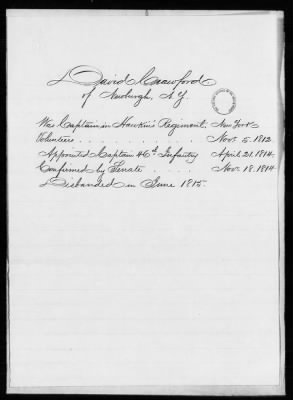 David Crawford
of Newburgh, N.Y.
Was Captain in Hawkins Regiment, New York
Volunteers . . . . . . . . . . . Nov. 5. 1812.
Appointed Captain 46th Infantry April 21. 1814.
Confirmed by Senate . . . . Nov. 18. 1814
Disbanded in June 1815.